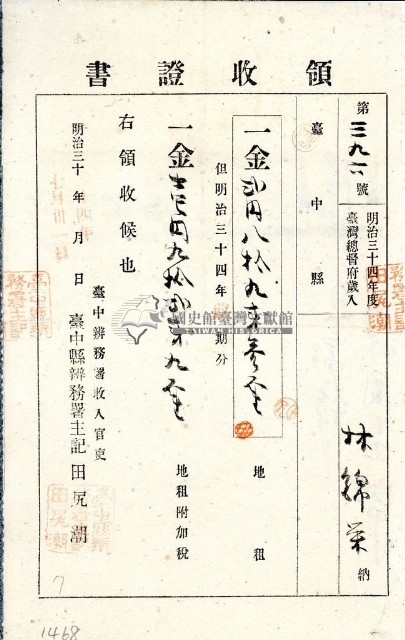 領收證書
第三九六號
明治三十四年度
臺灣總督府歲入
林錦榮 納
臺中縣
一金弍円八拾九錢參厘 地租
但明治三十四年 期分
一金壹円九拾弍錢九厘 地租附加稅
右領收候也
明治三十 年 月 日
臺中辨務署收入官吏
臺中縣辨務署主記 田尻潮
國史館臺灣文獻館
TAIWAN HISTORICA
7
1468